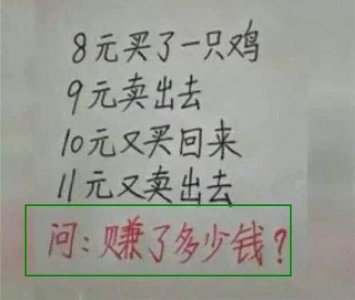 8元买了一只鸡
9元卖出去
10元又买回来
11元又卖出去
问：赚了多少钱？